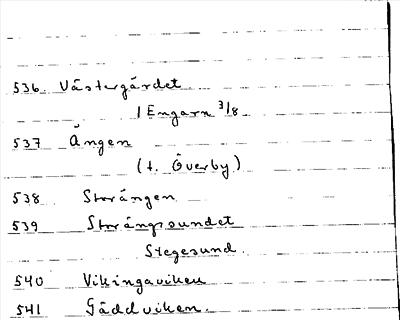 536. Västergärdet
1 Engarn 3/8
537 Ängen
(t. Överby)
538 Storängen
539 Storängssundet
Stegesund.
540 Vikingaviken
541 Gäddviken.